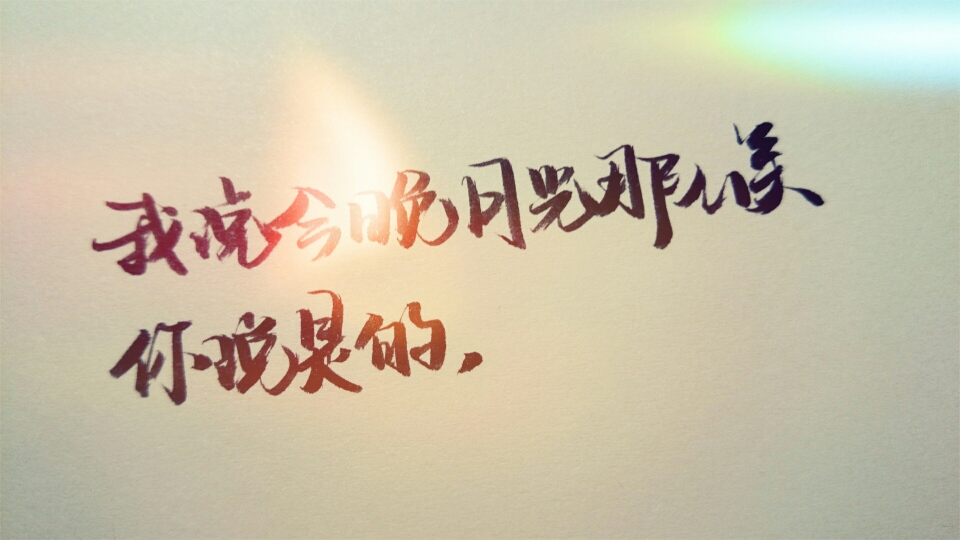 我说今晚月光那么美
你说是的,